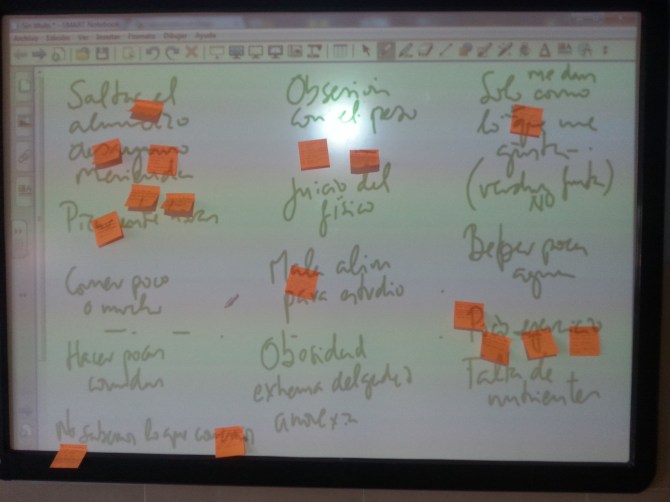 SMART Notebook
Archivo Edición Ver Insertar Formato Dibujar Ayuda
Saltar el
almuerzo
desayuno
merienda
Comer poco
o mucho
Hacer pocas
comidas
No sabemos lo que comemos
Obsesión
con el peso
Juicio del
físico
Mala alim
para estudio
Obesidad
extrema delgadez
anorexia
Solo me dan
como
lo que me
gusta
(verdura fruta)
NO
Beber poca
agua
Poco ejercicio
Falta de
nutrientes